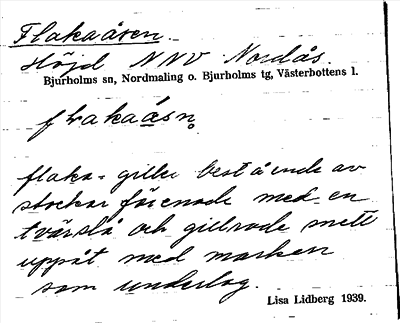 Flakaåsen.
Höjd NNV Nordås.
Bjurholms sn, Nordmaling o. Bjurholms tg, Västerbottens l.
flakaåsn̥
flaka = giller bestående av
stockar förenade med en
tvärslå och gillrade snett
uppåt med marken
som underlag.
Lisa Lidberg 1939.